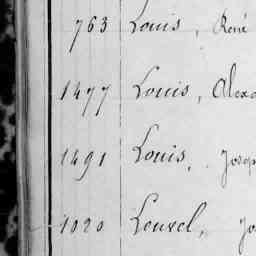 763 Louis, René
1477 Louis, Alexa
1491 Louis, Josep
1020 Louvel, Jo